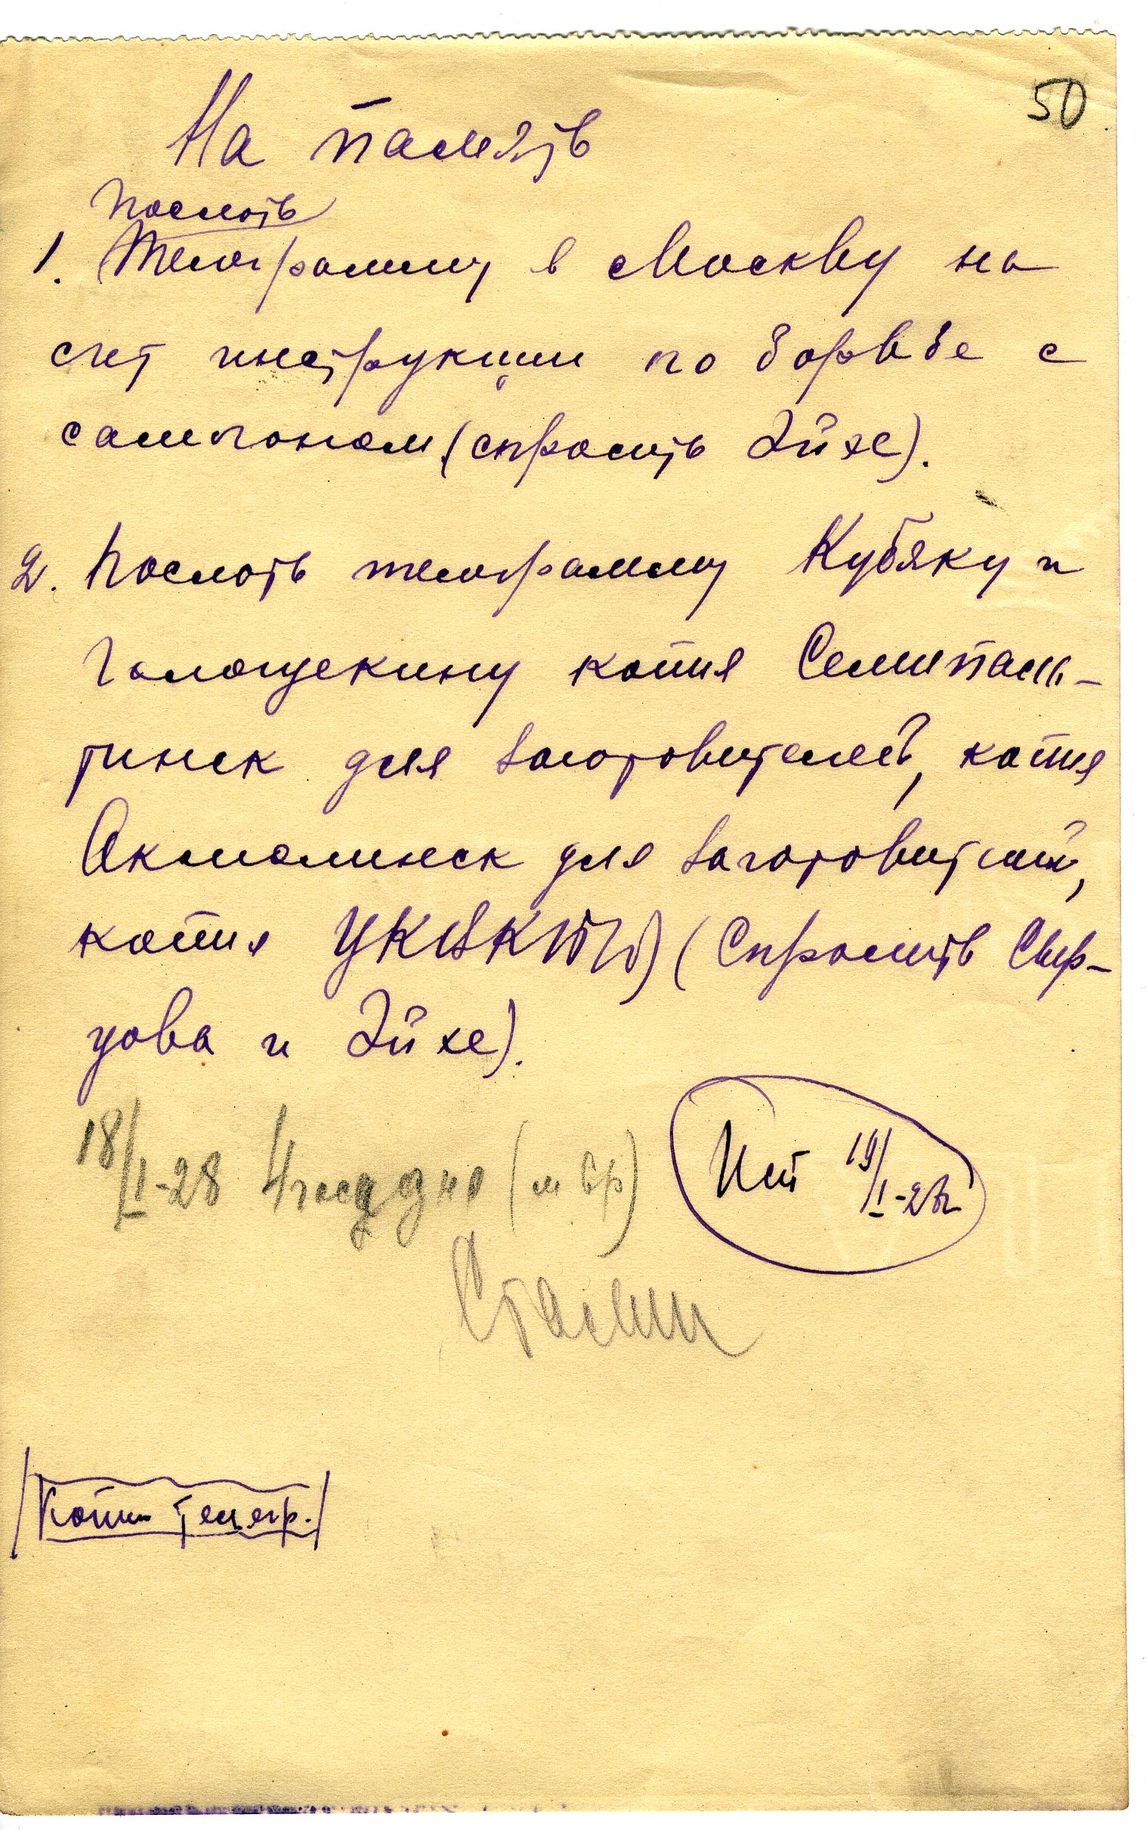 50
На память
Послать
1. Телеграмму в Москву на
счет инструкции по борьбе с
самогоном (спросить Эйхе).
2. Послать телеграмму Кубяку и
Голощекину копия Семипала-
тинск для заготовителей, копия
Акмолинск для заготовителей,
копия ЦК ВКП(б) (Спросить Сыр-
цова и Эйхе).
18/I-28 4 час дня
Исп 19/I-28
Сталин
Копии телегр.